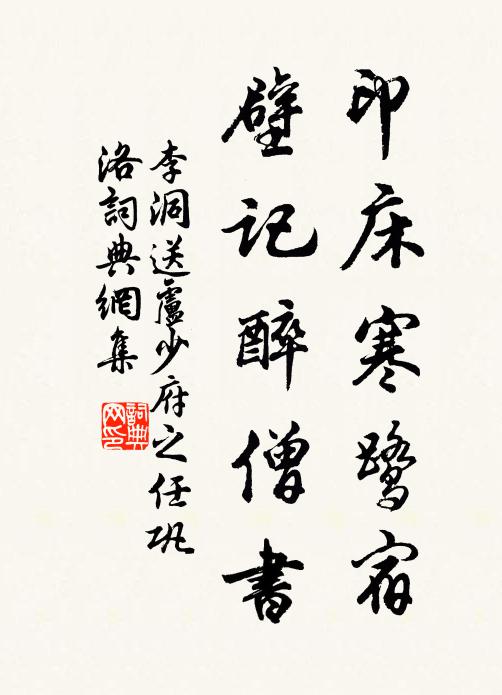 印床寒鷺宿
壁記醉僧書
李洞送盧少府之任巩
洛詞典網集
詞典网印